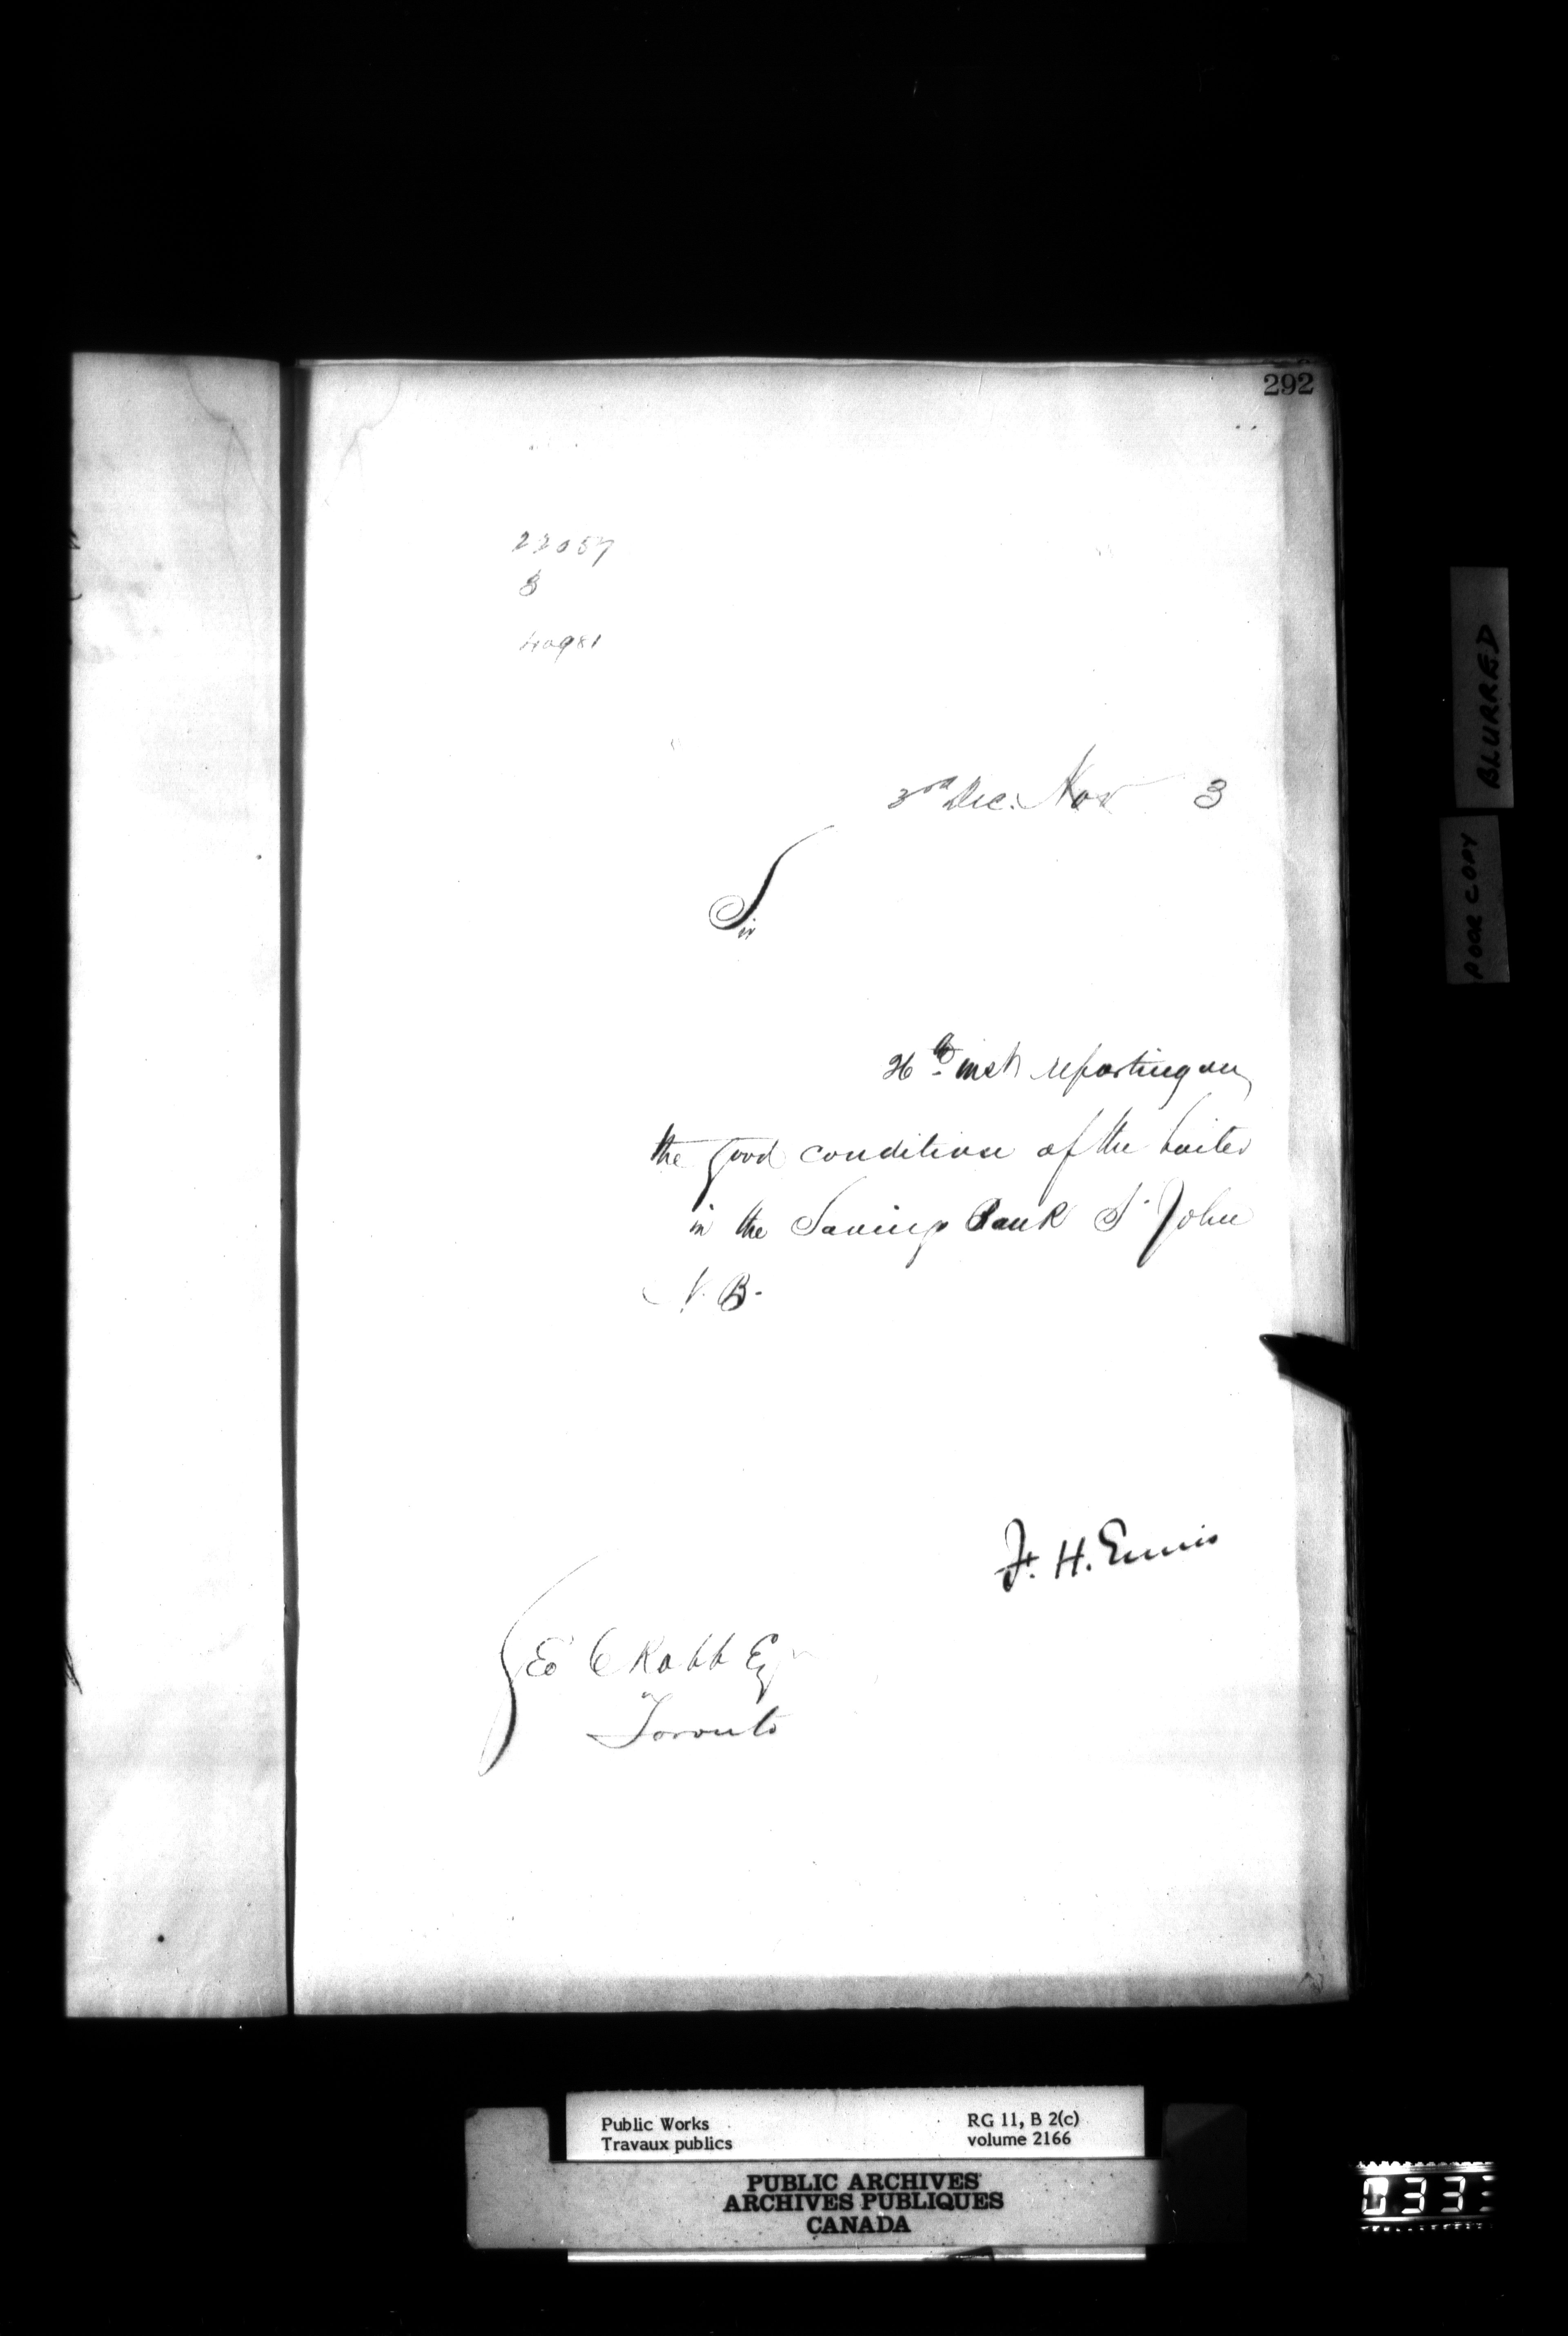 292
22057
3
40981
3rd Dec. Nov 3
Sir
26th inst reporting on
the good condition of the boiler
in the Savings Bank St John
N. B.
F. H. Ennis
Geo C Robb Esqr
Toronto
BLURRED
POOR COPY
Public Works
Travaux publics
RG 11, B 2(c)
volume 2166
PUBLIC ARCHIVES
ARCHIVES PUBLIQUES
CANADA
0333